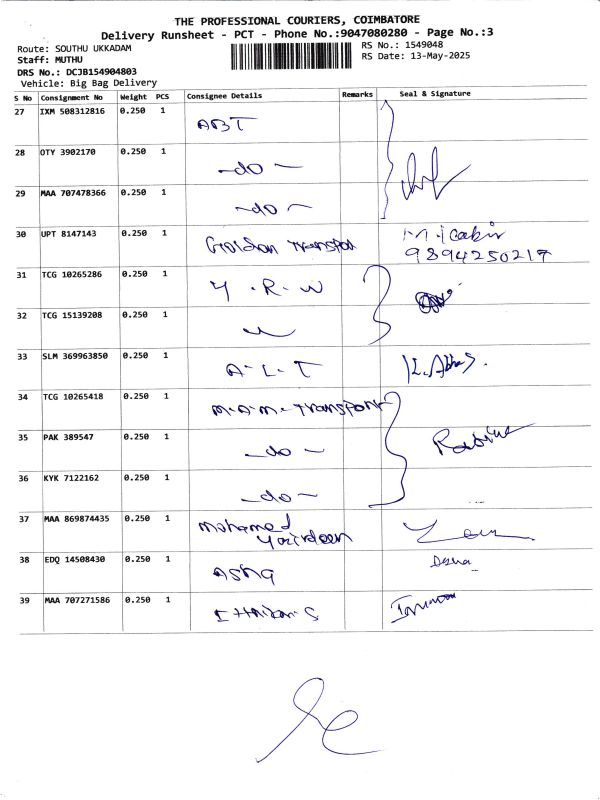 THE PROFESSIONAL COURIERS, COIMBATORE
Delivery Runsheet - PCT - Phone No.:9047080280 - Page No.:3
Route: SOUTHU UKKADAM
RS No.: 1549048
Staff: MUTHU
RS Date: 13-May-2025
DRS No.: DCJB154904803
Vehicle: Big Bag Delivery
S No Consignment No Weight PCS Consignee Details Remarks Seal & Signature
27 IXM 508312816 0.250 1 ABT
28 OTY 3902170 0.250 1 -do-
29 MAA 707478366 0.250 1 -do-
30 UPT 8147143 0.250 1 9894250217
31 TCG 10265286 0.250 1 Y.R.W
32 TCG 15139208 0.250 1
33 SLM 369963850 0.250 1 A-L-T
34 TCG 10265418 0.250 1 M.A.M-Transport
35 PAK 389547 0.250 1 -do-
36 KYK 7122162 0.250 1 -do-
37 MAA 869874435 0.250 1 Mohamed
38 EDQ 14508430 0.250 1
39 MAA 707271586 0.250 1